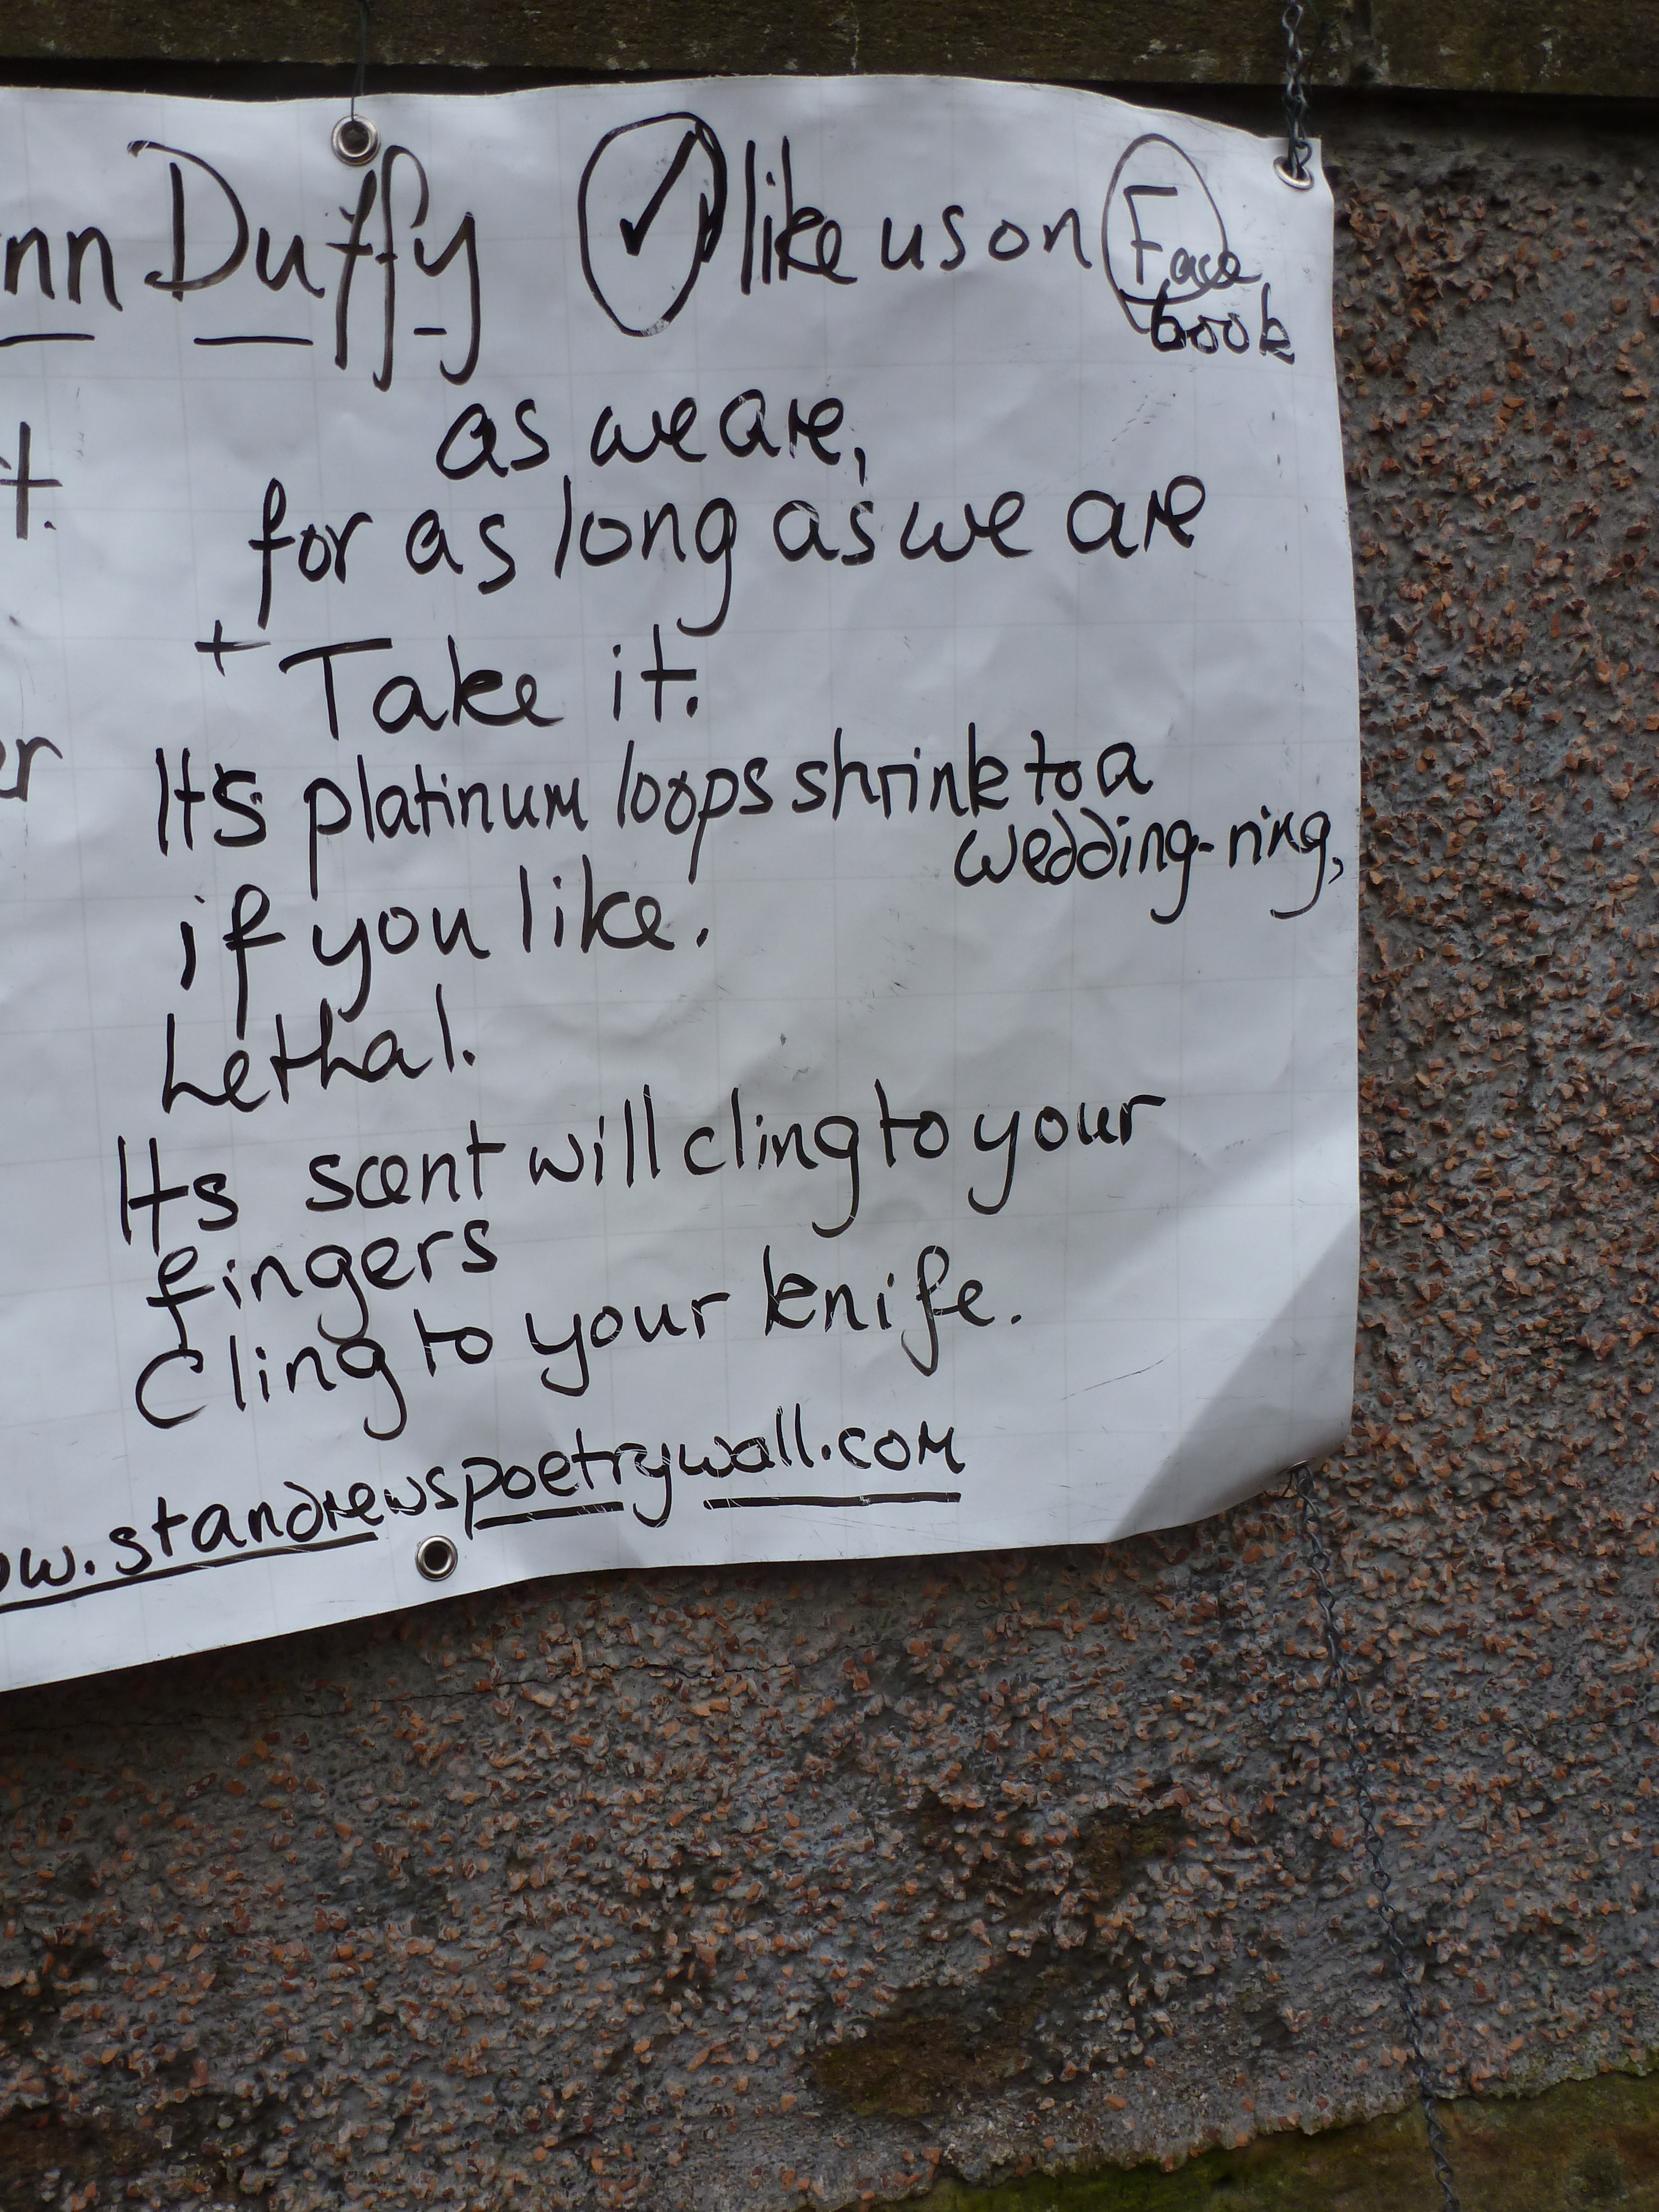 nn Duffy ✓ like us on Face
book
t.
as we are,
for as long as we are
+ Take it.
er
It's platinum loops shrink to a
wedding-ring,
if you like.
Lethal.
Its scent will cling to your
fingers
Cling to your knife.
w.standrewspoetrywall.com